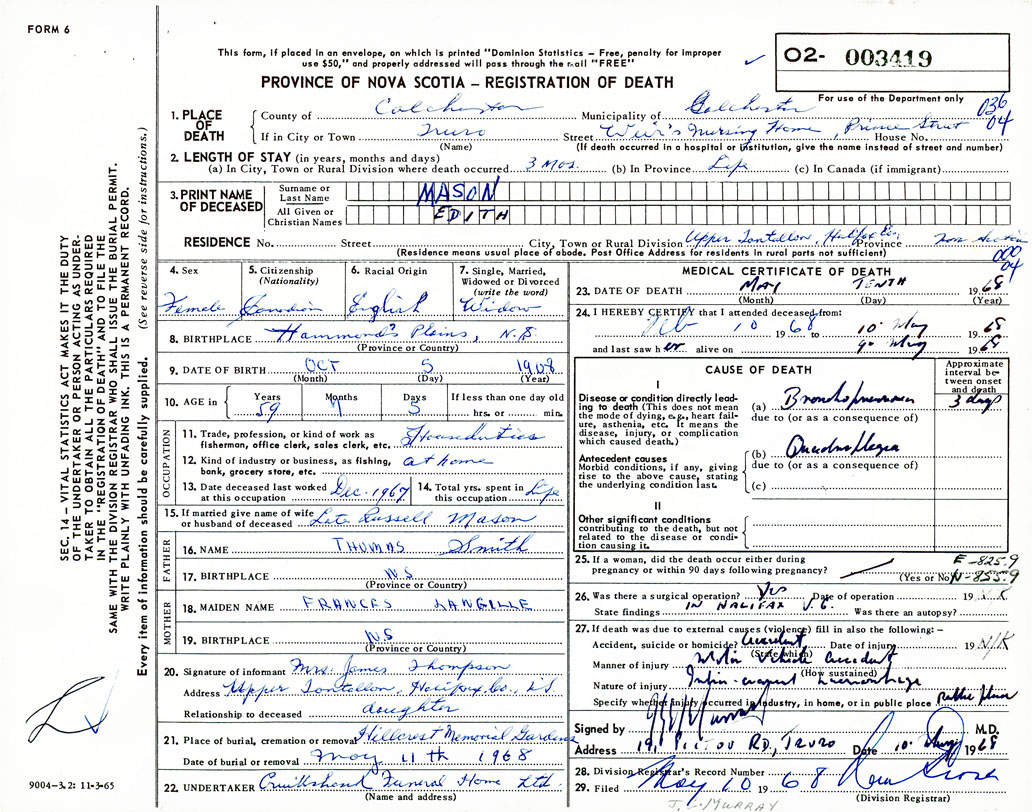 FORM 6
This form, if placed in an envelope, on which is printed "Dominion Statistics – Free, penalty for improper
use $50," and properly addressed will pass through the mail "FREE"
02- 003419
PROVINCE OF NOVA SCOTIA – REGISTRATION OF DEATH
For use of the Department only
036
04
1. PLACE OF DEATH
County of Colchester Municipality of Colchester
If in City or Town Truro Street Weir's Nursing Home, Prince Street House No.
(Name) (If death occurred in a hospital or institution, give the name instead of street and number)
2. LENGTH OF STAY (in years, months and days)
(a) In City, Town or Rural Division where death occurred 3 mos. (b) In Province Life (c) In Canada (if immigrant)
3. PRINT NAME OF DECEASED
Surname or Last Name MASON
All Given or Christian Names EDITH
RESIDENCE No. Street City, Town or Rural Division Upper Tantallon, Halifax Co. Province Nova Scotia
(Residence means usual place of abode. Post Office Address for residents in rural parts not sufficient)
000
04
4. Sex Female
5. Citizenship (Nationality) Canadian
6. Racial Origin English
7. Single, Married, Widowed or Divorced (write the word) Widow
8. BIRTHPLACE Hammond's Plains, N.S.
(Province or Country)
9. DATE OF BIRTH OCT 5 1908
(Month) (Day) (Year)
10. AGE in Years 59 Months 7 Days 5 If less than one day old hrs. or min.
OCCUPATION
11. Trade, profession, or kind of work as fisherman, office clerk, sales clerk, etc. Houseduties
12. Kind of industry or business, as fishing, bank, grocery store, etc. at home
13. Date deceased last worked at this occupation Dec. 1967
14. Total yrs. spent in this occupation Life
15. If married give name of wife or husband of deceased Late Russell Mason
FATHER
16. NAME THOMAS Smith
17. BIRTHPLACE N.S
(Province or Country)
MOTHER
18. MAIDEN NAME FRANCES LANGILLE
19. BIRTHPLACE N.S
(Province or Country)
20. Signature of informant Mrs. James Thompson
Address Upper Tantallon, Halifax Co., N.S.
Relationship to deceased daughter
21. Place of burial, cremation or removal Hillcrest Memorial Gardens
Date of burial or removal May 11th 1968
22. UNDERTAKER Cruikshank Funeral Home Ltd.
(Name and address)
MEDICAL CERTIFICATE OF DEATH
23. DATE OF DEATH MAY TENTH 1968
(Month) (Day) (Year)
24. I HEREBY CERTIFY that I attended deceased from:
Feb 10 1968 to 10 May 1968
and last saw her alive on 9 May 1968
CAUSE OF DEATH
Approximate interval between onset and death
I
Disease or condition directly leading to death (This does not mean the mode of dying, e.g., heart failure, asthenia, etc. It means the disease, injury, or complication which caused death.)
(a) Bronchopneumonia 3 days
due to (or as a consequence of)
Antecedent causes
Morbid conditions, if any, giving rise to the above cause, stating the underlying condition last.
(b) Quadraplegia
due to (or as a consequence of)
(c)
II
Other significant conditions contributing to the death, but not related to the disease or condition causing it.
25. If a woman, did the death occur either during pregnancy or within 90 days following pregnancy?
(Yes or No)
E-825.9
N-855.9
26. Was there a surgical operation? Yes Date of operation 19 N.K
State findings IN HALIFAX V.G. Was there an autopsy?
27. If death was due to external causes (violence) fill in also the following:–
Accident, suicide or homicide? Accident Date of injury 19 N/K
(State which)
Manner of injury Motor vehicle accident
(How sustained)
Nature of injury haemorrhage
Specify whether injury occurred in industry, in home, or in public place public place
Signed by J L Murray M.D.
Address 191 PICTOU RD, TRURO Date 10 May 1968
28. Division Registrar's Record Number
29. Filed May 10 1968
(Division Registrar)
J. L. MURRAY
SEC. 14 – VITAL STATISTICS ACT MAKES IT THE DUTY
OF THE UNDERTAKER OR PERSON ACTING AS UNDERTAKER TO OBTAIN ALL THE PARTICULARS REQUIRED
IN THE "REGISTRATION OF DEATH" AND TO FILE THE
SAME WITH THE DIVISION REGISTRAR WHO SHALL ISSUE THE BURIAL PERMIT.
WRITE PLAINLY WITH UNFADING INK. THIS IS A PERMANENT RECORD.
Every item of information should be carefully supplied. (See reverse side for instructions.)
9004-3.2: 11-3-65